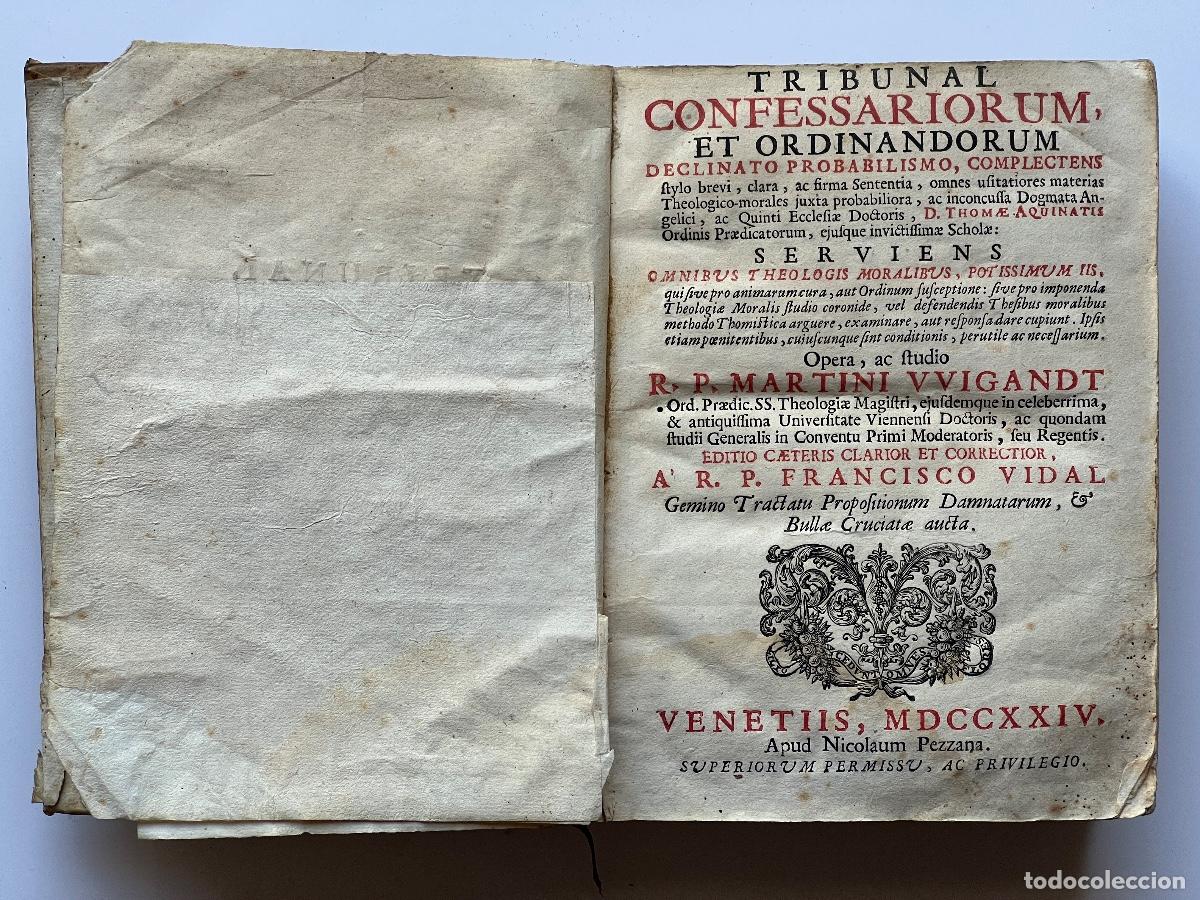 TRIBUNAL
CONFESSARIORUM,
ET ORDINANDORUM
DECLINATO PROBABILISMO, COMPLECTENS
ſtylo brevi, clara, ac firma Sententia, omnes uſitatiores materias
Theologico-morales juxta probabiliora, ac inconcuſſa Dogmata An-
gelici, ac Quinti Eccleſiæ Doctoris, D. THOMÆ AQUINATIS
Ordinis Prædicatorum, ejuſque invictiſſimæ Scholæ:
SERVIENS
OMNIBVS THEOLOGIS MORALIBVS, POTISSIMVM IIS,
qui ſive pro animarum cura, aut Ordinum ſuſceptione: ſive pro imponenda
Theologiæ Moralis ſtudio coronide, vel defendendis Theſibus moralibus
methodo Thomiſtica arguere, examinare, aut reſponſa dare cupiunt. Ipſis
etiam pœnitentibus, cujuſcunque ſint conditionis, perutile ac neceſſarium.
Opera, ac ſtudio
R. P. MARTINI VVIGANDT
Ord. Prædic. SS. Theologiæ Magiſtri, ejuſdemque in celeberrima,
& antiquiſſima Univerſitate Viennenſi Doctoris, ac quondam
ſtudii Generalis in Conventu Primi Moderatoris, ſeu Regentis.
EDITIO CÆTERIS CLARIOR ET CORRECTIOR,
A' R. P. FRANCISCO VIDAL
Gemino Tractatu Propoſitionum Damnatarum, &
Bullæ Cruciatæ aucta.
CEDVNT OMNES
VENETIIS, MDCCXXIV.
Apud Nicolaum Pezzana.
SVPERIORVM PERMISSV, AC PRIVILEGIO.
todocoleccion